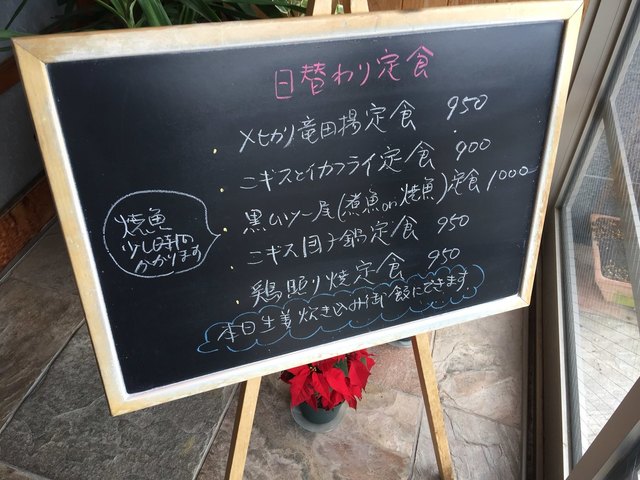 日替わり定食
メヒカリ竜田揚定食 950
ニギスとイカフライ定食 900
黒ムツ一尾(煮魚or焼魚)定食 1000
ニギス団子鍋定食 950
鶏照り焼定食 950
焼魚
少し時間
かかります
本日生姜炊き込み御飯にできます